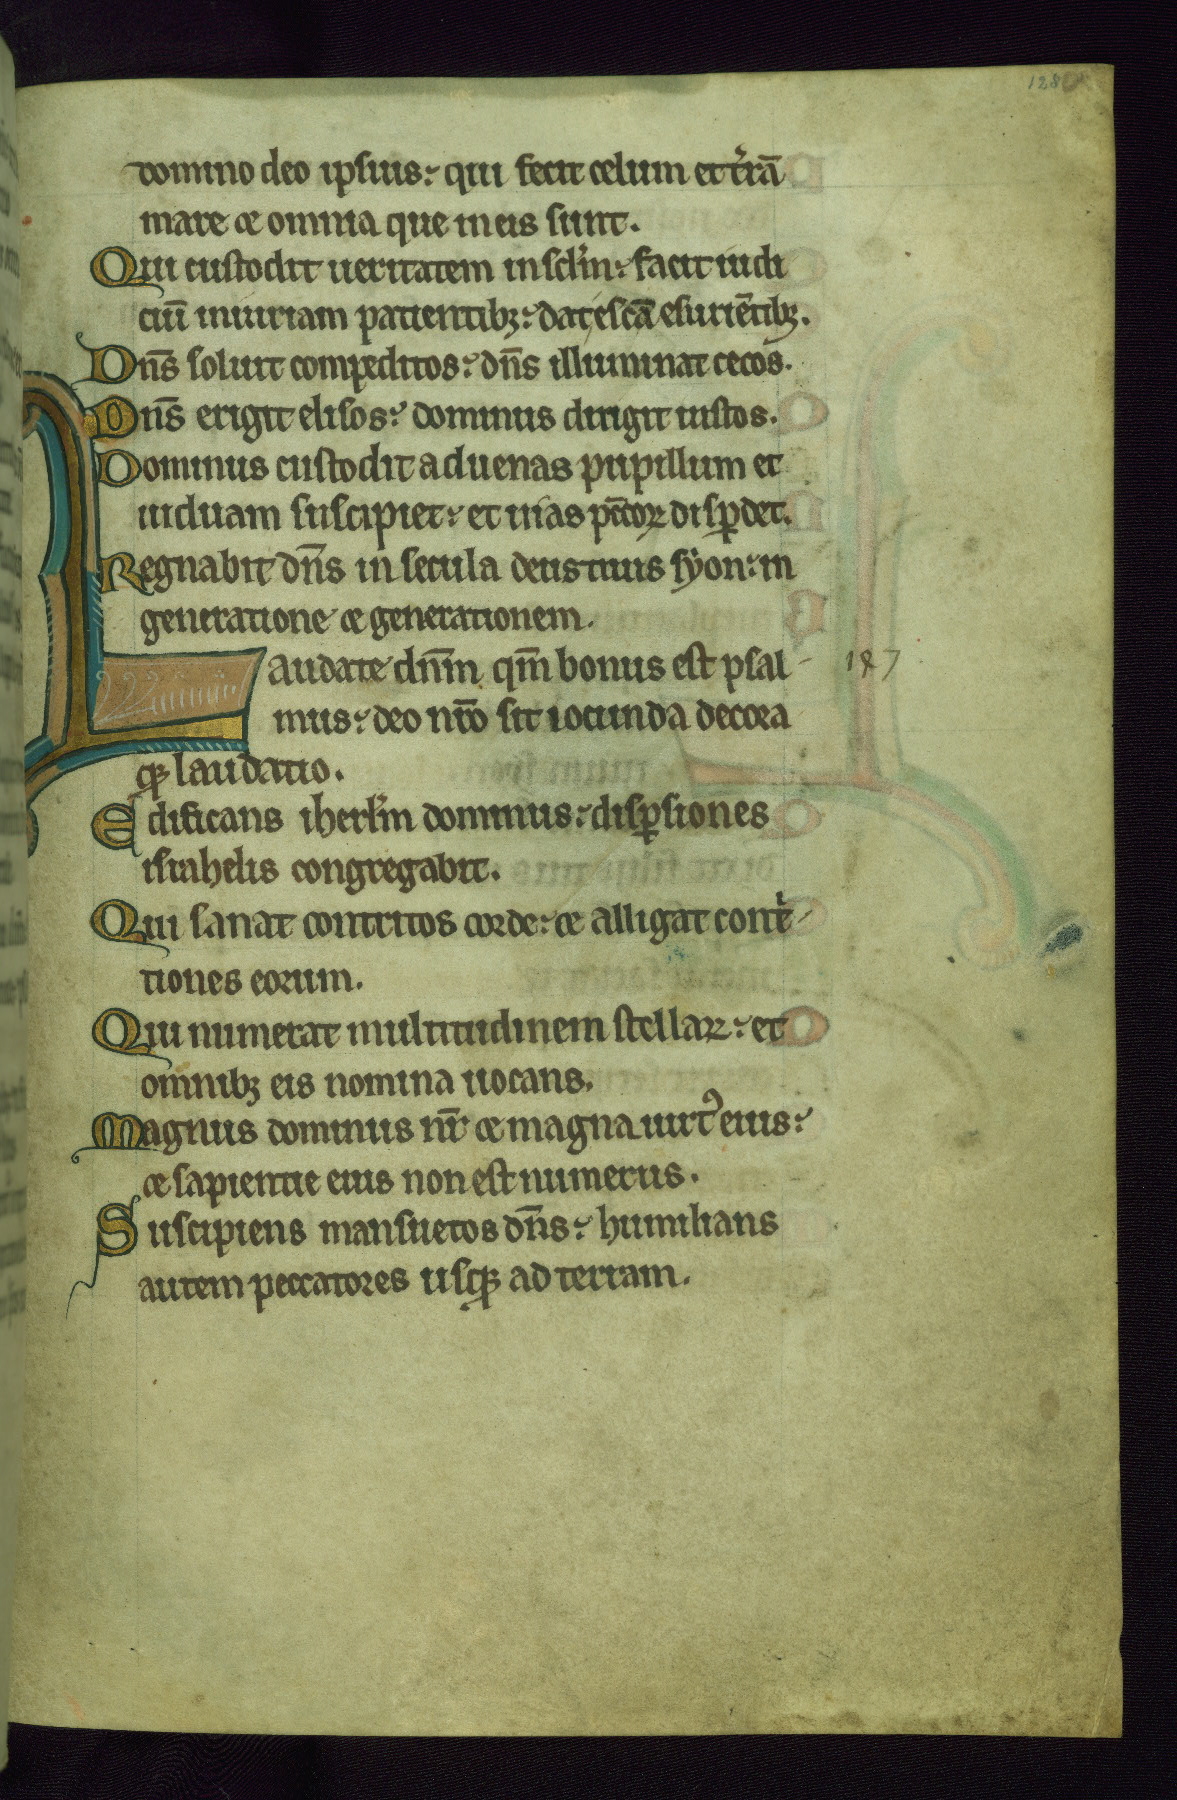 128
domino deo ipsius: qui fecit celum et t̉rā
mare ⁊ omnia que in eis sunt.
Qui custodit ueritatem in sc̄lm: facit iudi
ciū iniuriam patientibꝫ: dat escā esuriētibꝫ.
Dn̄s soluit compeditos: dn̄s illuminat cecos.
Dn̄s erigit elisos: dominus dirigit iustos.
Dominus custodit aduenas pupillum et
uiduam suscipiet: et uias pc̄coꝝ disꝑdet.
Regnabit dn̄s in secula deus tuus syon: in
generatione ⁊ generationem.
Laudate dn̄m qm̄ bonus est psal- 147
mus: deo nr̄o sit iocunda decora
qꝫ laudatio.
Edificans iherl̄m dominus: disꝑsiones
israhelis congregabit.
Qui sanat contritos corde: ⁊ alligat contⁱ-
tiones eorum.
Qui numerat multitudinem stellaꝝ: et
omnibꝫ eis nomina uocans.
Magnus dominus nr̄ ⁊ magna uirtꝰ eius:
⁊ sapientie eius non est numerus.
Suscipiens mansuetos dn̄s: humilians
autem peccatores usqꝫ ad terram.